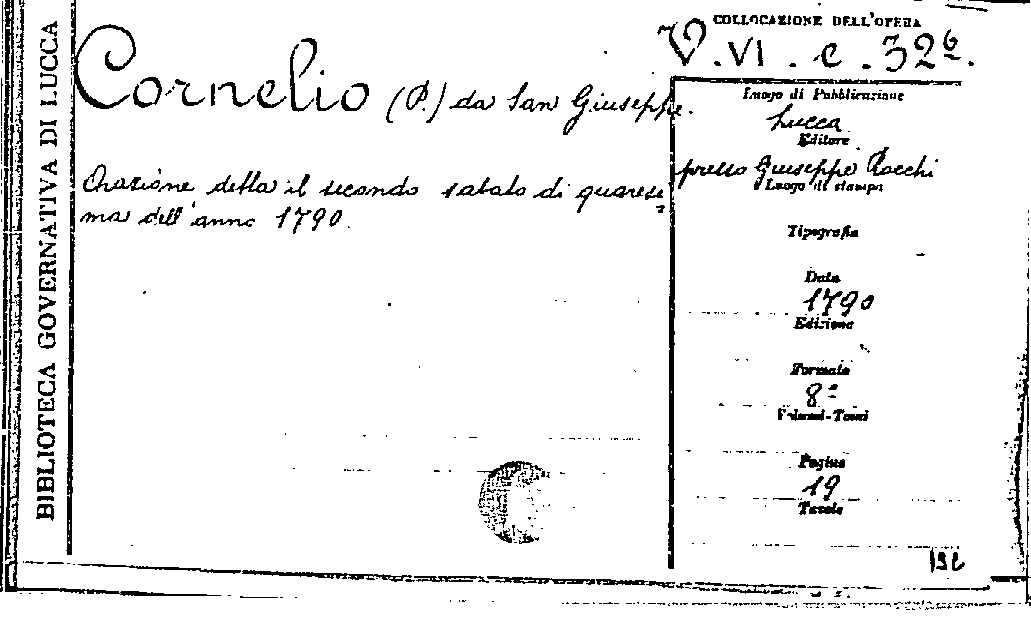 BIBLIOTECA GOVERNATIVA DI LUCCA
Cornelio (P.) da San Giuseppe.
Orazione detta il secondo sabato di quares
ma dell'anno 1790.
COLLOCAZIONE DELL'OPERA
V. VI. c. 32⁶.
Luogo di Pubblicazione
Lucca
Editore
presso Giuseppe Rocchi
Luogo di stampa
Tipografia
Data
1790
Edizione
Formato
8º
Volumi-Tomi
Pagine
19
Tavole